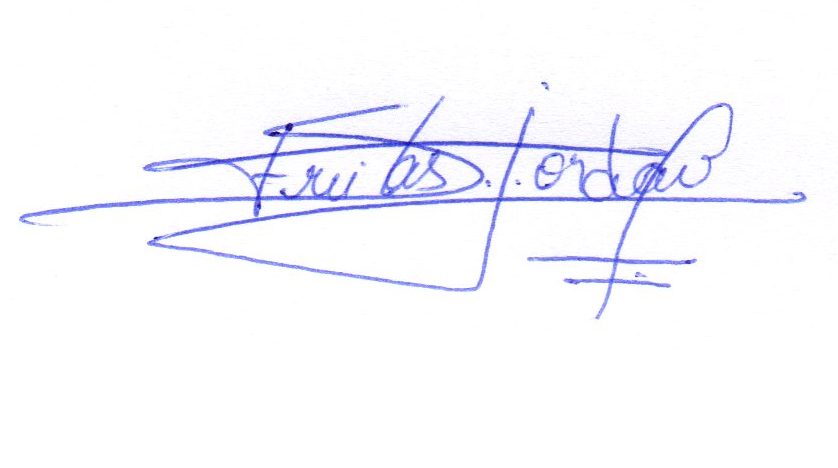 Freitas Jordão